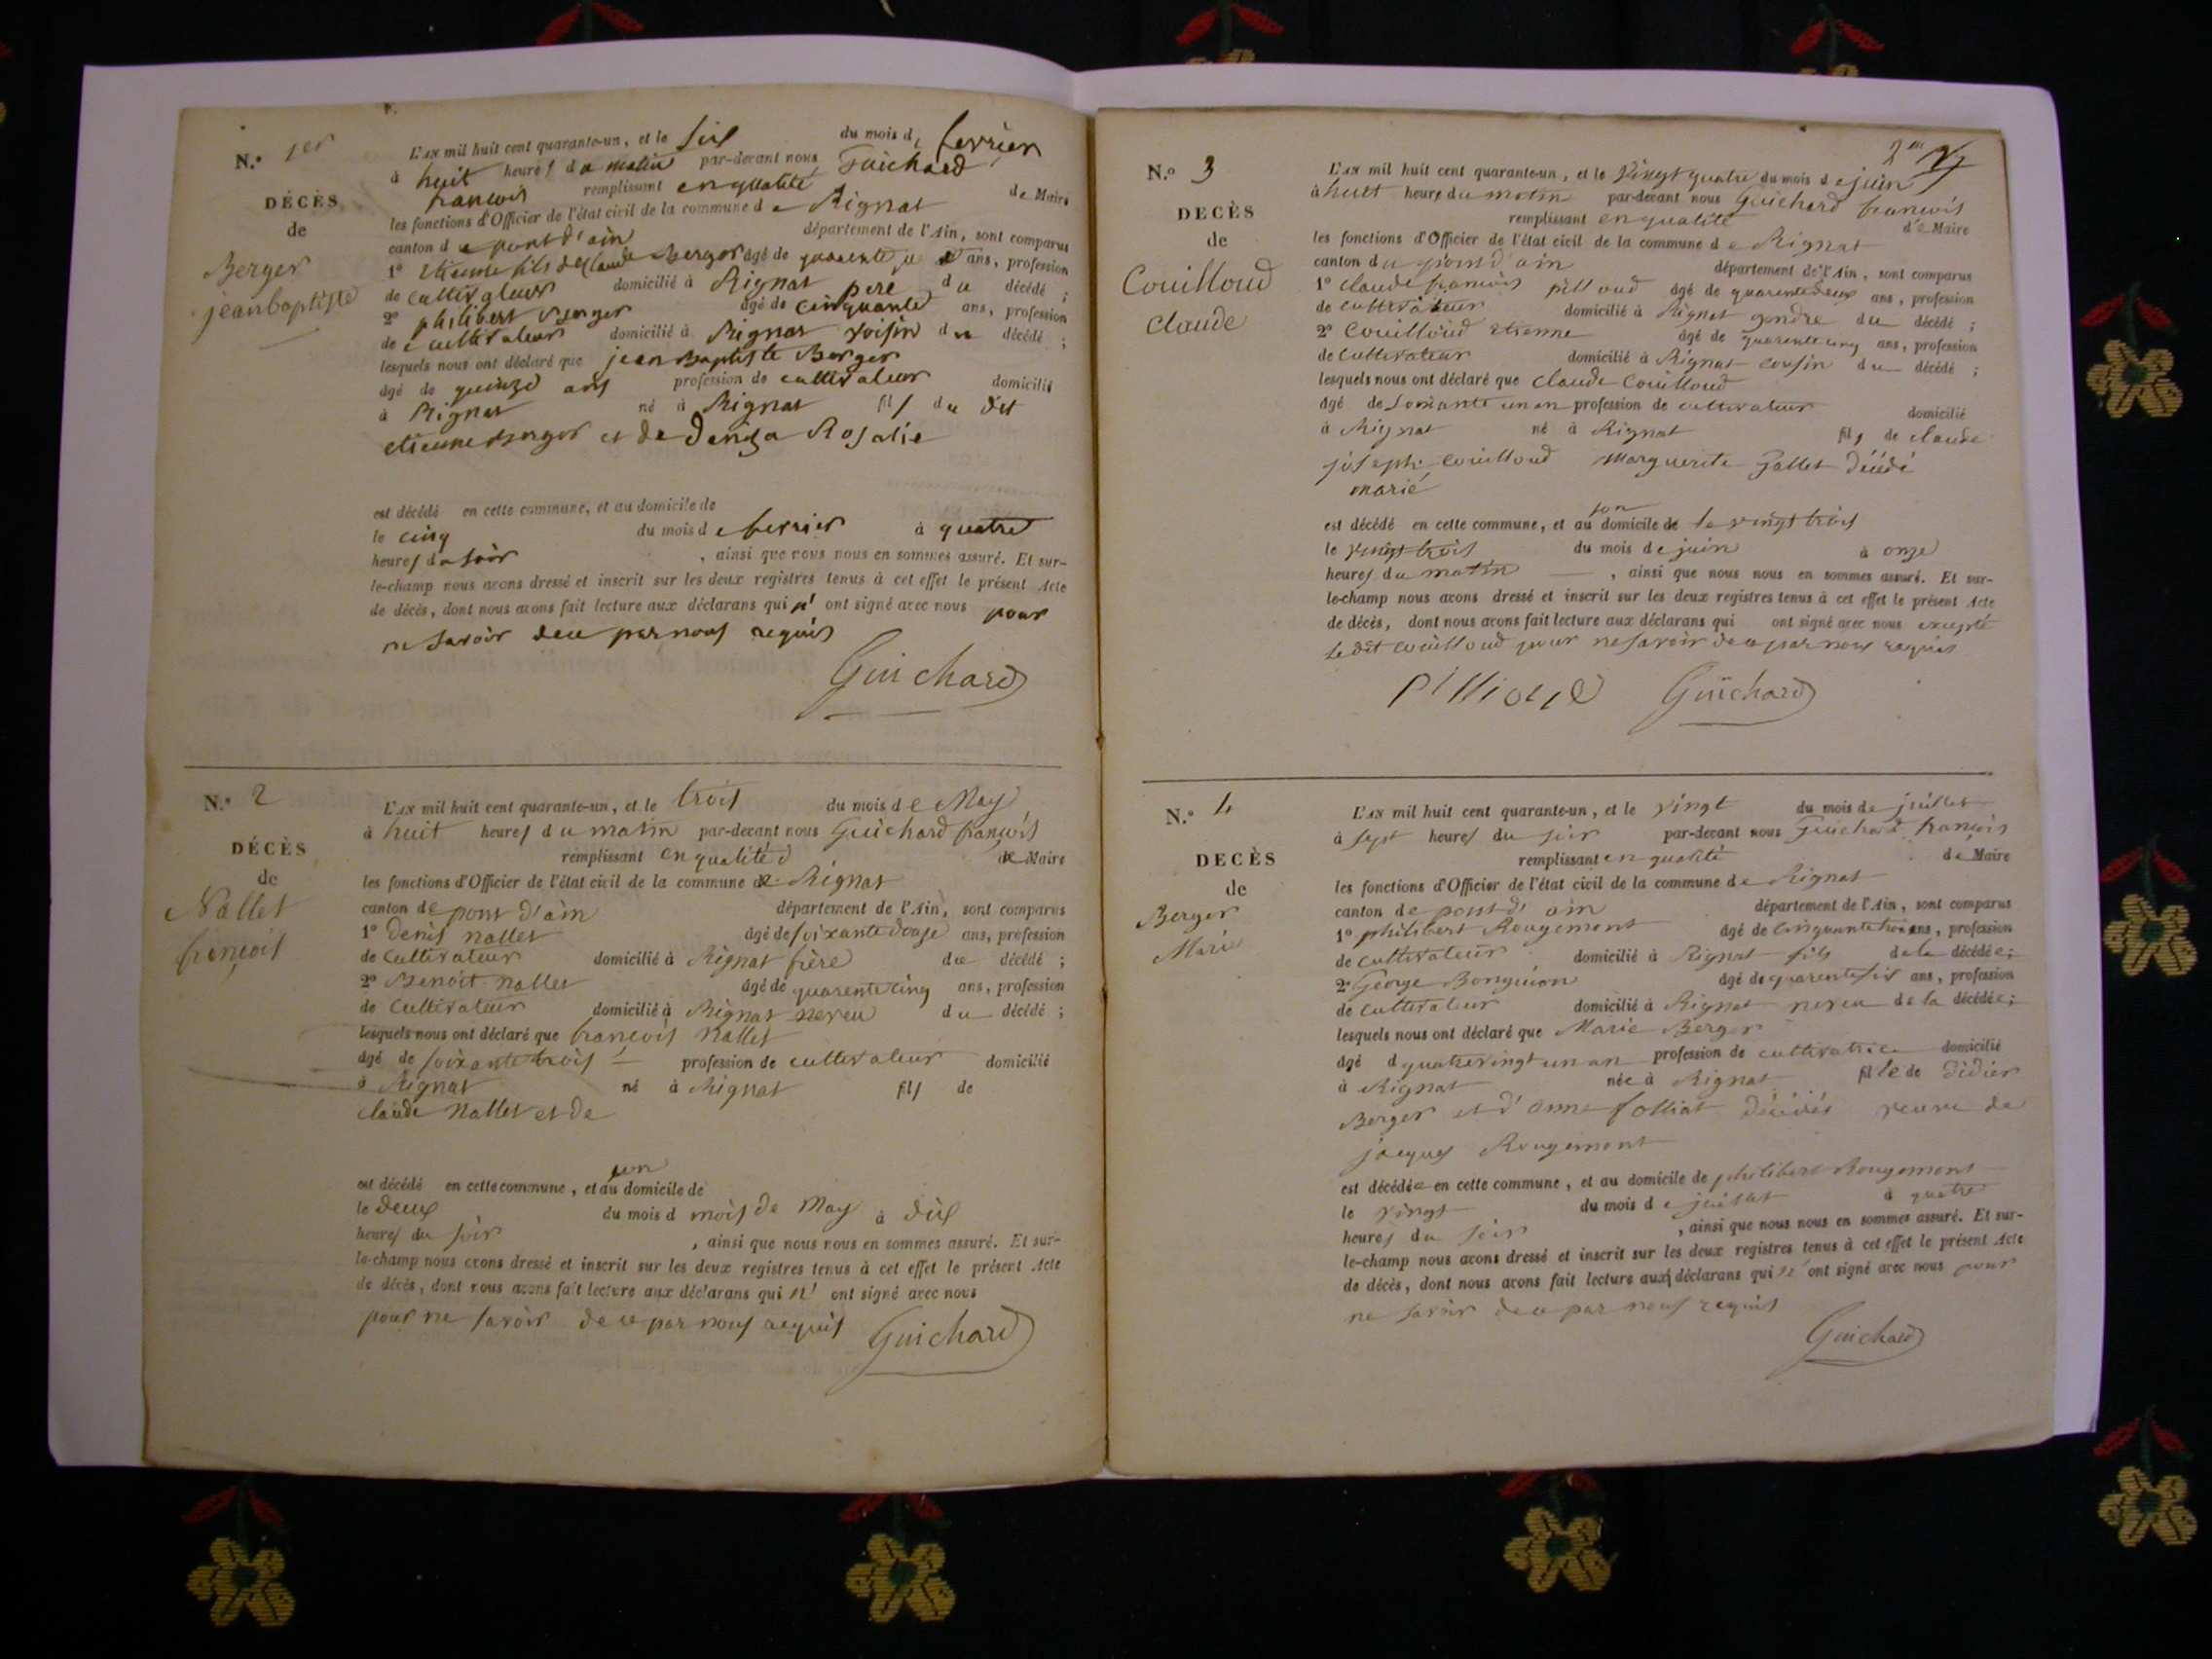 N.° 1er
DÉCÈS
de
Berger
jeanbaptiste
L'AN mil huit cent quarante-un, et le six du mois de fevrier
à huit heures du matin par-devant nous Guichard
francois remplissant en qualité de Maire
les fonctions d'Officier de l'état civil de la commune de Rignat
canton de pont d'ain département de l'Ain, sont comparus
1° etienne fils de Claude Berger âgé de quarente ans, profession
de cultivateur domicilié à Rignat pere du décédé ;
2° philibert Berger âgé de cinquante ans, profession
de cultivateur domicilié à Rignat voisin du décédé ;
lesquels nous ont déclaré que jean Baptiste Berger
âgé de quinze ans profession de cultivateur domicilié
à Rignat né à Rignat fils du dit
etienne Berger et de Rosalie
est décédé en cette commune, et au domicile de
le cinq du mois de fevrier à quatre
heures du soir , ainsi que nous nous en sommes assuré. Et sur-
le-champ nous avons dressé et inscrit sur les deux registres tenus à cet effet le présent Acte
de décès, dont nous avons fait lecture aux déclarans qui n' ont signé avec nous pour
ne savoir de ce par nous requis
Guichard
N.° 2
DÉCÈS
de
Nallet
françois
L'AN mil huit cent quarante-un, et le trois du mois de May
à huit heures du matin par-devant nous Guichard françois
remplissant en qualité de Maire
les fonctions d'Officier de l'état civil de la commune de Rignat
canton de pont d'ain département de l'Ain, sont comparus
1° denis nallet âgé de soixante douze ans, profession
de cultivateur domicilié à Rignat frère du décédé ;
2° Benoit nallet âgé de quarente cinq ans, profession
de cultivateur domicilié à Rignat neveu du décédé ;
lesquels nous ont déclaré que francois nallet
âgé de soixante trois profession de cultivateur domicilié
à Rignat né à Rignat fils de
claude Nallet et de
son
est décédé en cette commune, et au domicile de
le deux du mois d mois de May à dix
heures du soir , ainsi que nous nous en sommes assuré. Et sur-
le-champ nous avons dressé et inscrit sur les deux registres tenus à cet effet le présent Acte
de décès, dont nous avons fait lecture aux déclarans qui n' ont signé avec nous
pour ne savoir de ce par nous requis Guichard
2me
N.° 3
DECÈS
de
Couilloud
claude
L'AN mil huit cent quarante-un, et le vingt quatre du mois de juin
à huit heure du matin par-devant nous Guichard francois
remplissant en qualité de Maire
les fonctions d'Officier de l'état civil de la commune de Rignat
canton du pont d'ain département de l'Ain, sont comparus
1° claude francois pilloud âgé de quarente deux ans, profession
de cultivateur domicilié à Rignat gendre du décédé ;
2° Couilloud etienne âgé de quarente cinq ans, profession
de cultivateur domicilié à Rignat cousin du décédé ;
lesquels nous ont déclaré que claude Couilloud
âgé de soixante un an profession de cultivateur domicilié
à Rignat né à Rignat fils de claude
joseph couilloud Marguerite Gallet décédé
marié
son
est décédé en cette commune, et au domicile de le vingt trois
le vingt trois du mois de juin à onze
heures du matin , ainsi que nous nous en sommes assuré. Et sur-
le-champ nous avons dressé et inscrit sur les deux registres tenus à cet effet le présent Acte
de décès, dont nous avons fait lecture aux déclarans qui ont signé avec nous excepté
le dit couilloud pour ne savoir de ce par nous requis
Guichard
N.° 4
DECÈS
de
Berger
Marie
L'AN mil huit cent quarante-un, et le vingt du mois de juillet
à sept heures du soir par-devant nous Guichard françois
remplissant en qualité de Maire
les fonctions d'Officier de l'état civil de la commune de Rignat
canton de pont d'ain département de l'Ain, sont comparus
1° philibert Rougemont âgé de cinquante trois ans, profession
de cultivateur domicilié à Rignat fils de la décédée ;
2° George Bonguion âgé de quarente six ans, profession
de cultivateur domicilié à Rignat neveu de la décédée ;
lesquels nous ont déclaré que Marie Berger
âgé d quatre vingt un an profession de cultivatrice domicilié
à Rignat née à Rignat fille de Didier
Berger et d'anne folliat décédés veuve de
jacques Rougemont
est décédée en cette commune, et au domicile de philibert Rougemont
le vingt du mois de juillet à quatre
heures du soir , ainsi que nous nous en sommes assuré. Et sur-
le-champ nous avons dressé et inscrit sur les deux registres tenus à cet effet le présent Acte
de décès, dont nous avons fait lecture aux déclarans qui n' ont signé avec nous pour
ne savoir de ce par nous requis
Guichard